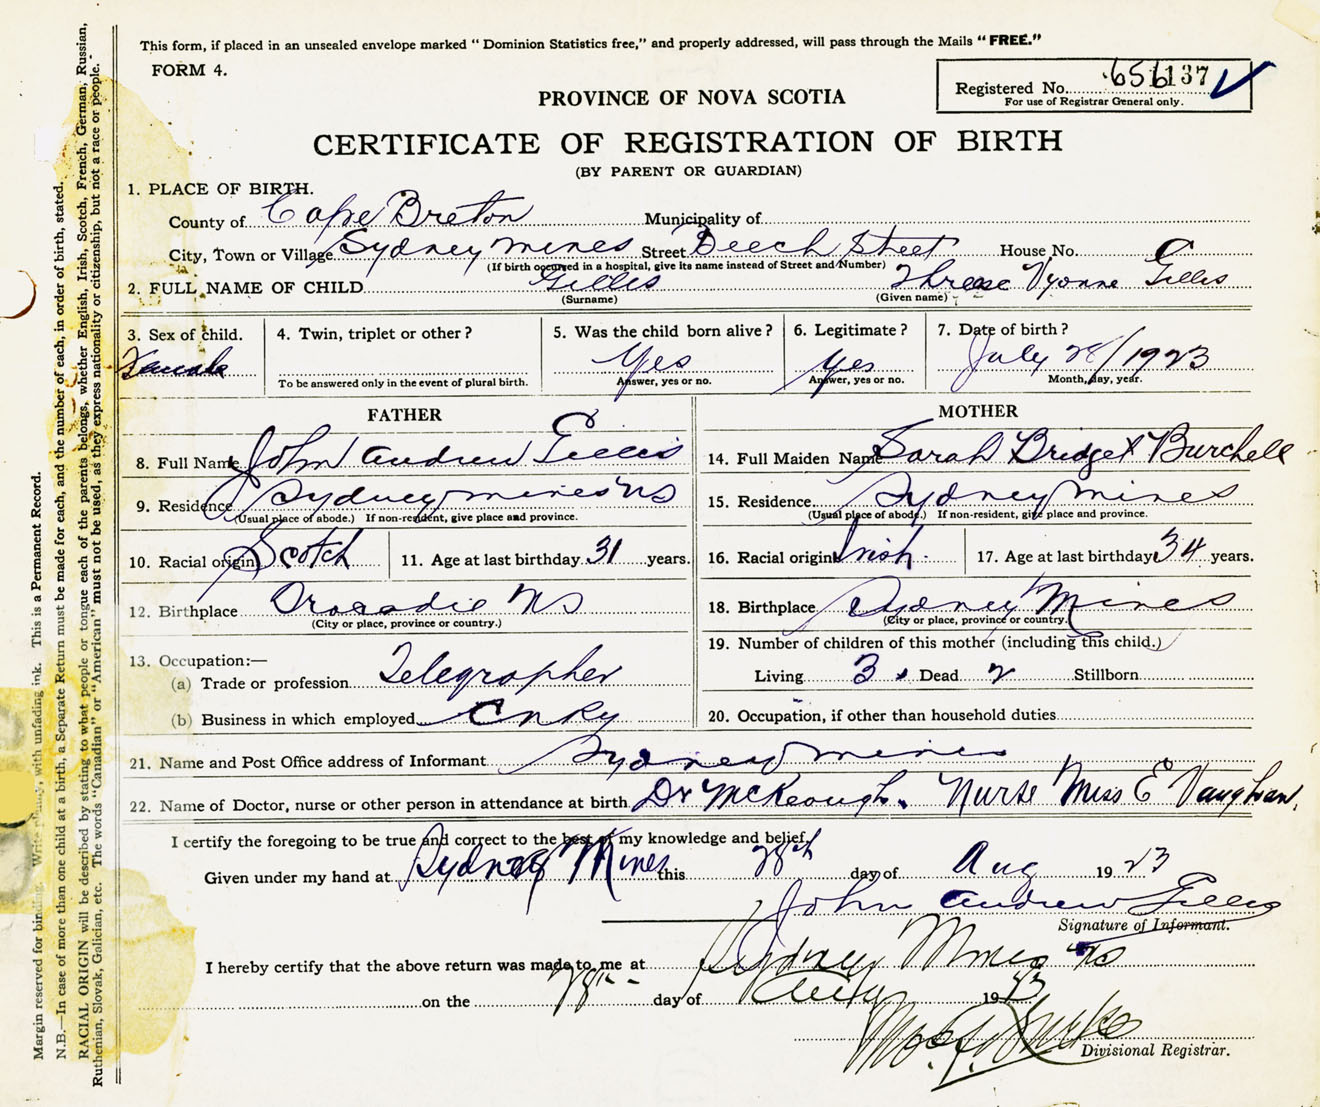 This form, if placed in an unsealed envelope marked "Dominion Statistics free," and properly addressed, will pass through the Mails "FREE."
FORM 4.
Registered No. 656137
For use of Registrar General only.
PROVINCE OF NOVA SCOTIA
CERTIFICATE OF REGISTRATION OF BIRTH
(BY PARENT OR GUARDIAN)
1. PLACE OF BIRTH.
County of Cape Breton Municipality of
City, Town or Village Sydney mines Street Beech Street House No.
(If birth occurred in a hospital, give its name instead of Street and Number)
2. FULL NAME OF CHILD Gillis Yvonne Gillis
(Surname) (Given name)
3. Sex of child. 4. Twin, triplet or other? 5. Was the child born alive? 6. Legitimate? 7. Date of birth?
Female Yes yes July 28/1923
To be answered only in the event of plural birth. Answer, yes or no. Answer, yes or no. Month, day, year.
FATHER MOTHER
8. Full Name John Andrew Gillis 14. Full Maiden Name Sarah Bridget Burchell
9. Residence Sydney mines NS 15. Residence Sydney Mines
(Usual place of abode.) If non-resident, give place and province. (Usual place of abode.) If non-resident, give place and province.
10. Racial origin Scotch 11. Age at last birthday 31 years. 16. Racial origin Irish 17. Age at last birthday 34 years.
12. Birthplace NS 18. Birthplace Sydney Mines
(City or place, province or country.) (City or place, province or country.)
19. Number of children of this mother (including this child.)
13. Occupation:—
(a) Trade or profession Telegrapher Living 3 Dead 2 Stillborn
(b) Business in which employed CNRy 20. Occupation, if other than household duties
21. Name and Post Office address of Informant Sydney mines
22. Name of Doctor, nurse or other person in attendance at birth Dr McKeough. Nurse Miss E Vaughan.
I certify the foregoing to be true and correct to the best of my knowledge and belief.
Given under my hand at Sydney Mines this 28th day of Aug 1923
John Andrew Gillis
Signature of Informant.
I hereby certify that the above return was made to me at Sydney Mines NS
on the 28th day of Aug 1923
Divisional Registrar.
Margin reserved for binding. Write plainly, with unfading ink. This is a Permanent Record.
N.B.—In case of more than one child at a birth, a Separate Return must be made for each, and the number of each, in order of birth, stated.
RACIAL ORIGIN will be described by stating to what people or tongue each of the parents belongs, whether English, Irish, Scotch, French, German, Russian,
Ruthenian, Slovak, Galician, etc. The words "Canadian" or "American" must not be used, as they express nationality or citizenship, but not a race or people.